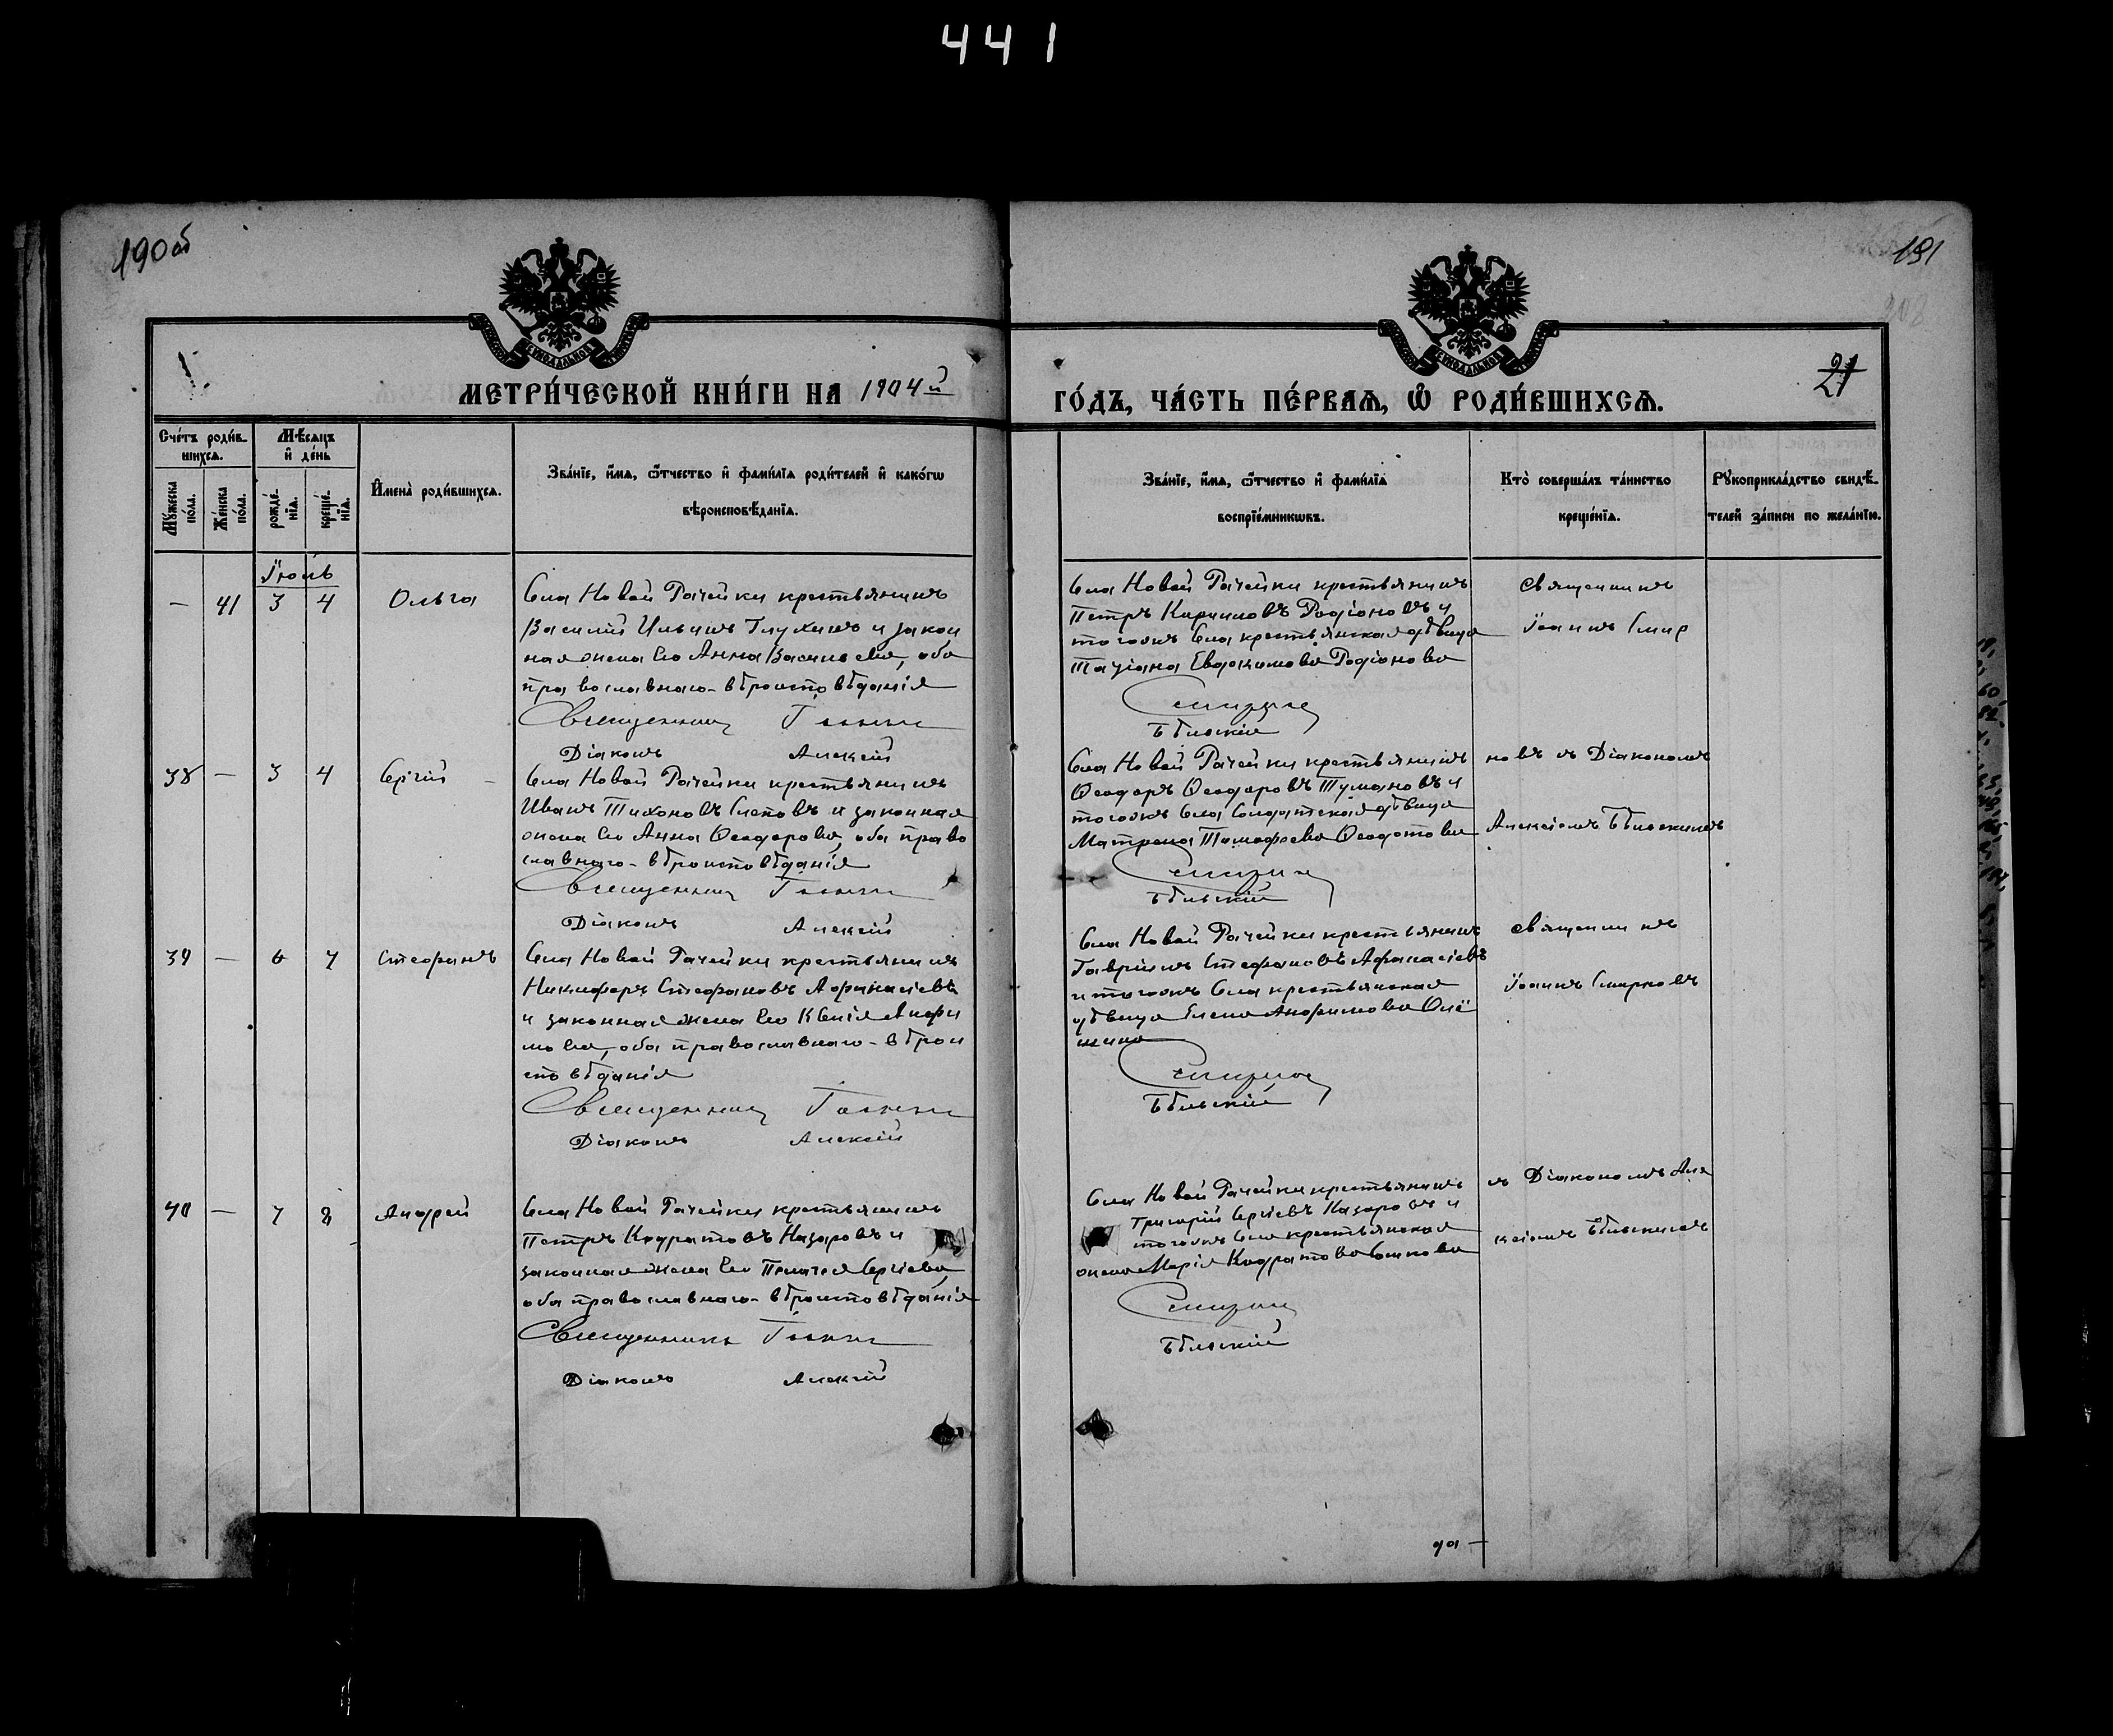 441
190 об
191
МЕТРИ́ЧЕСКОЙ КНИ́ГИ НА 1904 й
ГО́ДЪ, ЧА́СТЬ ПЕ́РВАѦ, Ѡ҆ РОДИ́ВШИХСѦ.
21
Сче́тъ роди́в-
шихсѧ.
Мѣ́сѧцъ
и҆ де́нь
Мꙋ́жеска по́ла.
Же́нска по́ла.
рожде́-нїѧ.
креще́-нїѧ.
И҆мена̀ роди́вшихсѧ.
Зва́нїе, и҆́мѧ, ѻ҆́тчество и҆ фами́лїѧ роди́телей и҆ како́гѡ
вѣроисповѣ́данїѧ.
Зва́нїе, и҆́мѧ, ѻ҆́тчество и҆ фами́лїѧ
воспрїе́мникѡвъ.
Кто̀ соверша́лъ та́инство
креще́нїѧ.
Рꙋкоприкла́дство свидѣ́-
телей за́писи по жела́нїю.
Іюль
— 41 3 4 Ольга
Села Новой Рачейки крестьянинъ
Василій Ильинъ Глухинъ и закон
ная жена его Анна Васильева, оба
православнаго вѣроисповѣданія
Священникъ Іоаннъ
Діаконъ Алексій
Села Новой Рачейки крестьянинъ
Петръ Кириловъ Родіоновъ и
тогожъ села крестьянская дѣвица
Татіана Евдокимова Родіонова
Смирнов
Бѣльскій
Священникъ
Іоаннъ Смир
38 — 3 4 Сергій
Села Новой Рачейки крестьянинъ
Иванъ Тихоновъ Слеповъ и законная
жена его Анна Ѳеодорова, оба право
славнаго вѣроисповѣданія
Священникъ Іоаннъ
Діаконъ Алексій
Села Новой Рачейки крестьянинъ
Ѳеодоръ Ѳеодоровъ Тумановъ и
тогожъ села солдатская дѣвица
Матрона Тимофеева Ѳедотова
Смирнов
Бѣльскій
новъ съ Діакономъ
Алексіемъ Бѣльскимъ
39 — 6 7 Стефанъ
Села Новой Рачейки крестьянинъ
Никифоръ Стефановъ Афанасіевъ
и законная жена его Ксенія Анфи
мова, оба православнаго вѣрои
споведанія
Священникъ Іоаннъ
Діаконъ Алексій
Села Новой Рачейки крестьянинъ
Гавріилъ Стефановъ Афанасіевъ
и тогожъ села крестьянская
дѣвица Елена Анфимова
Смирнов
Бѣльскій
Священникъ
Іоаннъ Смирновъ
40 — 7 8 Андрей
Села Новой Рачейки крестьянинъ
Петръ Кодратовъ Назаровъ и
законная жена его Пелагея Сергіева,
оба православнаго вѣроисповѣданія
Священникъ Іоаннъ
Діаконъ Алексій
Села Новой Рачейки крестьянинъ
Григорій Сергіевъ Назаровъ и
тогожъ села крестьянская
жена Марія Кодратова
Смирнов
Бѣльскій
съ Діакономъ Але
ксіемъ Бѣльскимъ